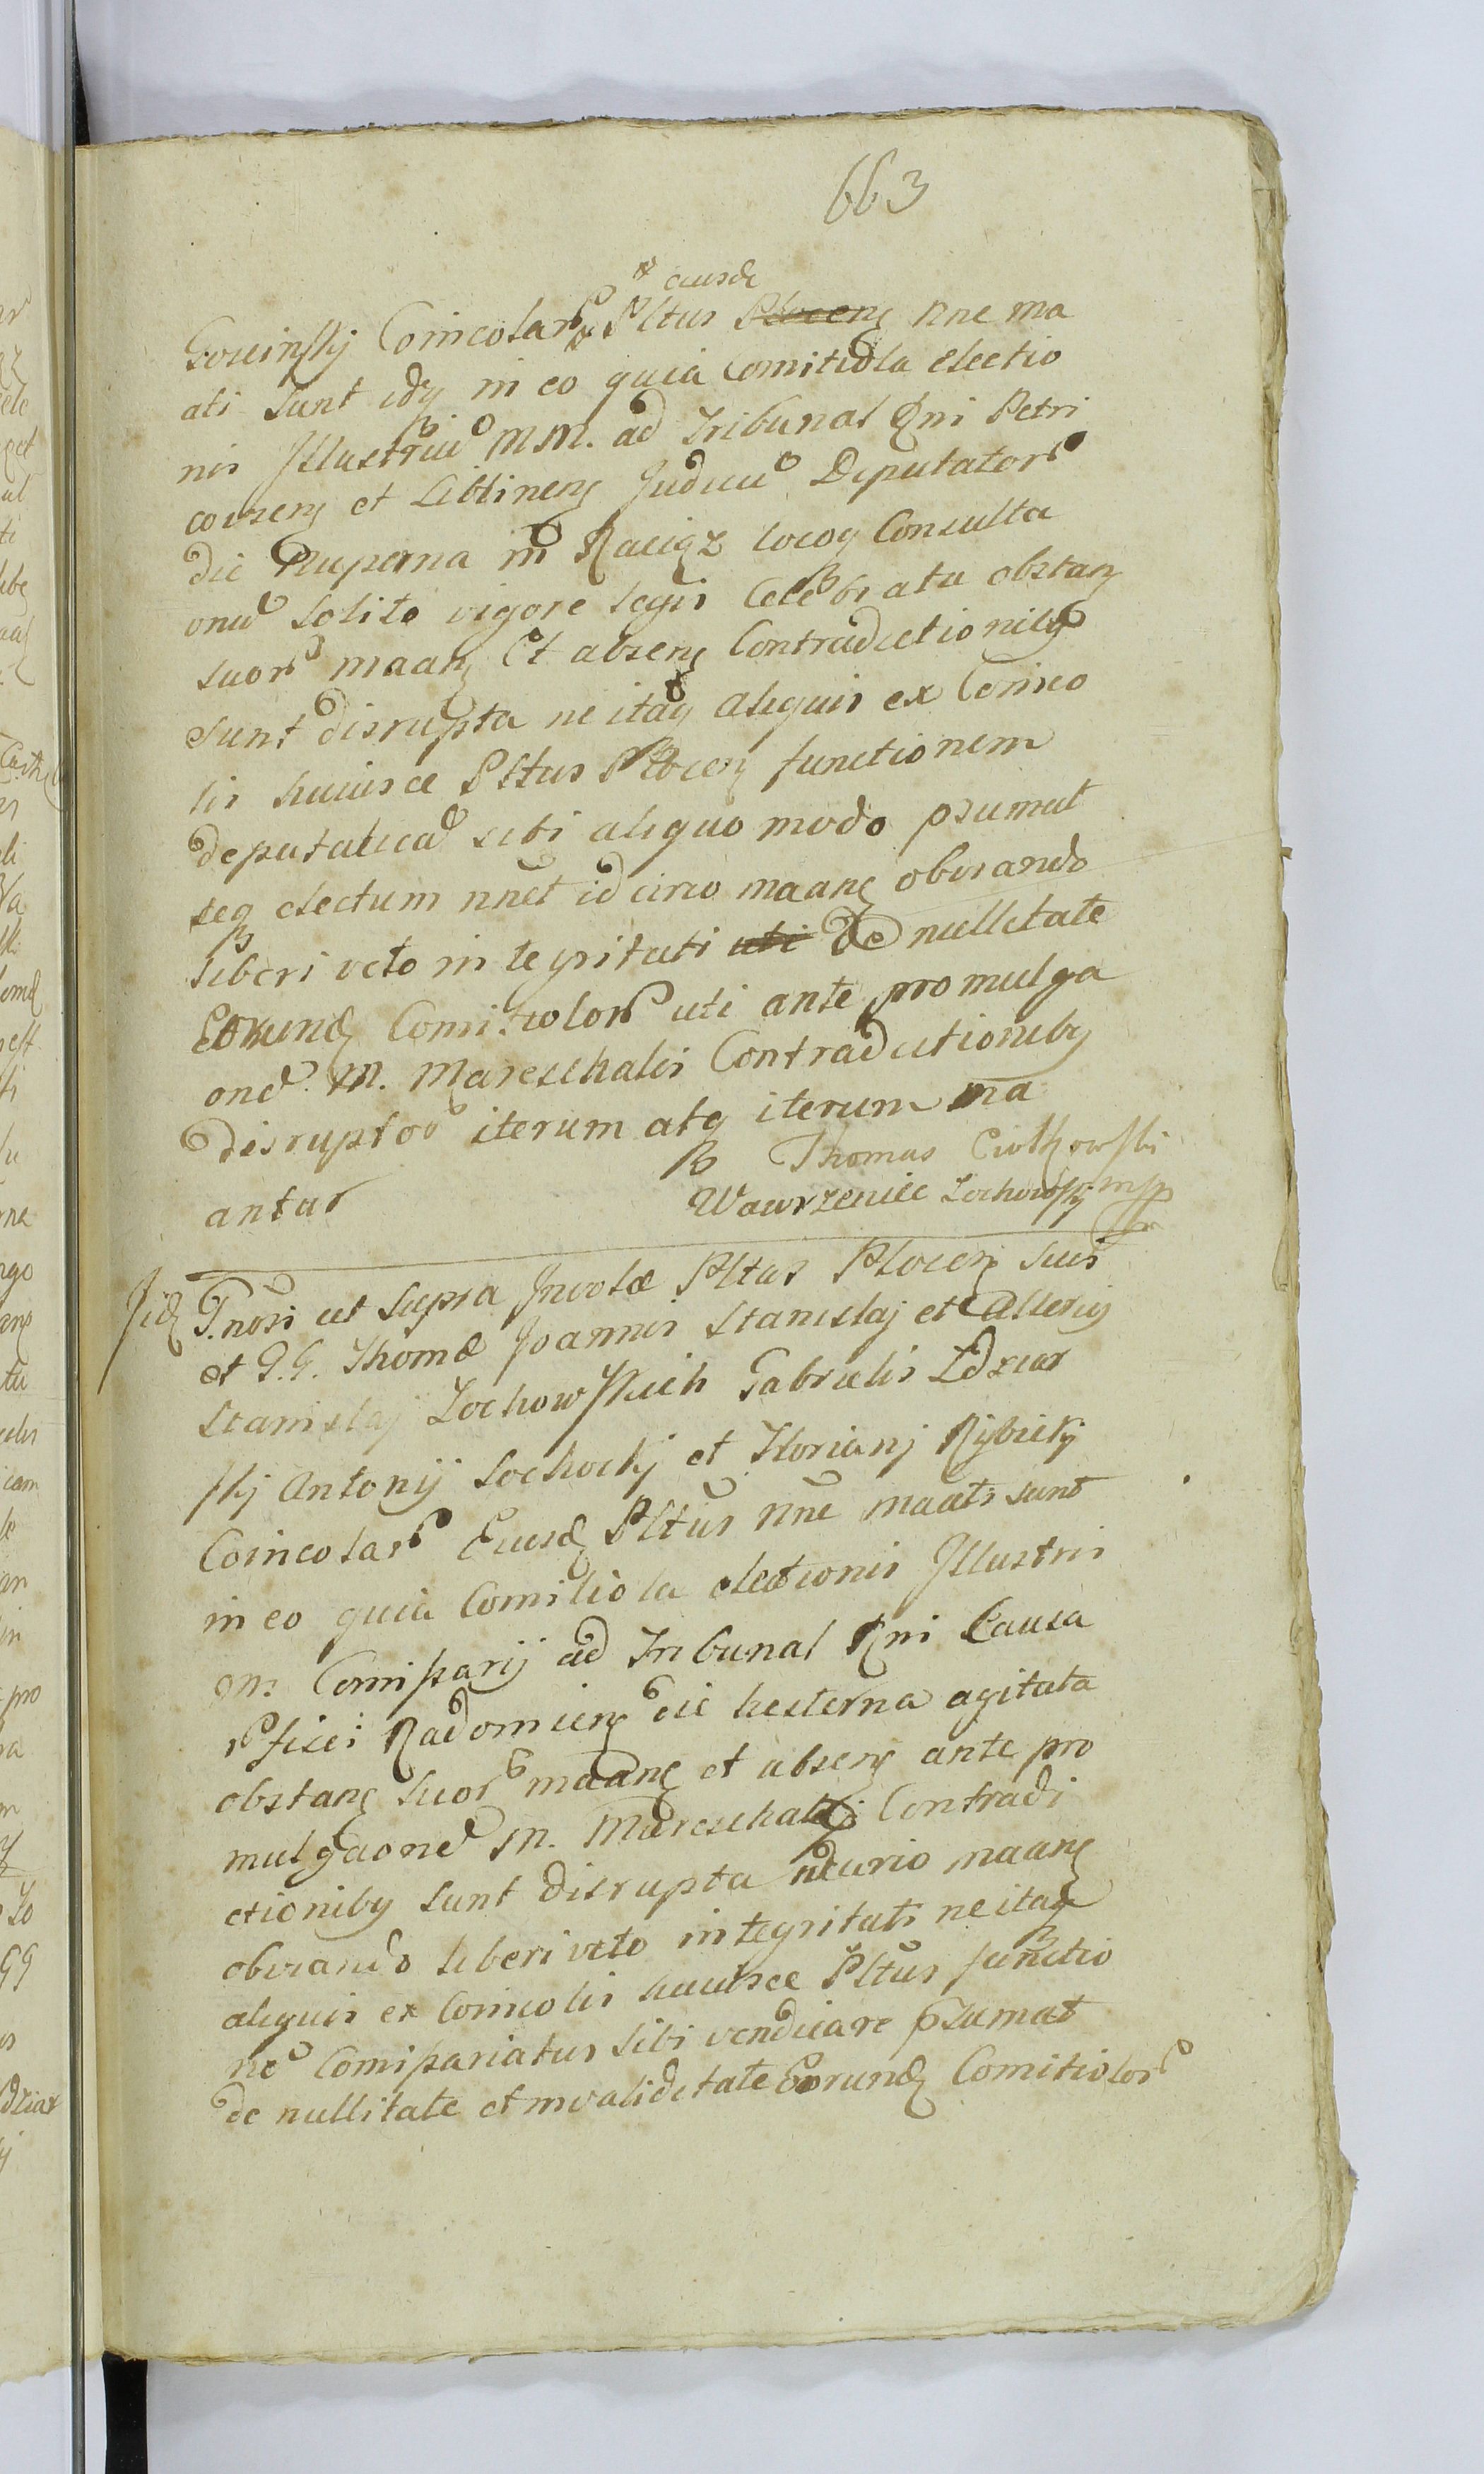 663
* eiusd
Goscinskij Coincolar * Pltus Plocen nne ma
ati sunt idq in eo quia Comitiola electio
nis Illustriu MM. ad Tribunal Rni Petri
covsens et Lublinens Judicu Deputator
die nuperna in Raciąz locoq Consulta
onu solito vigore legis Celebrata obstan
suor maan Et absens Contradictioniby
sunt disrupta ne itaq aliquis ex Coinco
lis huiusce Pltus Plocen functionem
deputatica sibi aliquo modo psumat
seq electum nnet idcirco maane obviando
liberi veto integritati uti de nullitate
Eorund Comitiolor uti ante promulga
one M. Mareschalis Contradictioniby
disruptor iterum atq iterum ma
antur
Thomas Ciołkowski
Wawrzeniec Żochowskj mpp
Jid G.nosi ut supra Incolæ Pltus Plocen suis
et G.G. Thomæ Joannis Stanislaj et Alterius
Stanislaj Żochowskich Gabrielis Zdziar
skj Antonij Sochockj et Florianj Rybickj
Coincolar Eiusd Pltus nne maati sunt
in eo quia Comitiola electionis Illustris
M. Comissarij ad Tribunal Rni Causa
r fisci Radomiens die hesterna agitata
obstan suor maane et absens ante pro
mulgaone M. Mareschalj Contradi
ctioniby sunt disrupta idcirco maane
obviando liberi veto integritati ne itaq
aliquis ex Coincolis huiusce Pltus functio
ne Comissariatus sibi vendicare psumat
de nullitate et invaliditate Eorund Comitiolor